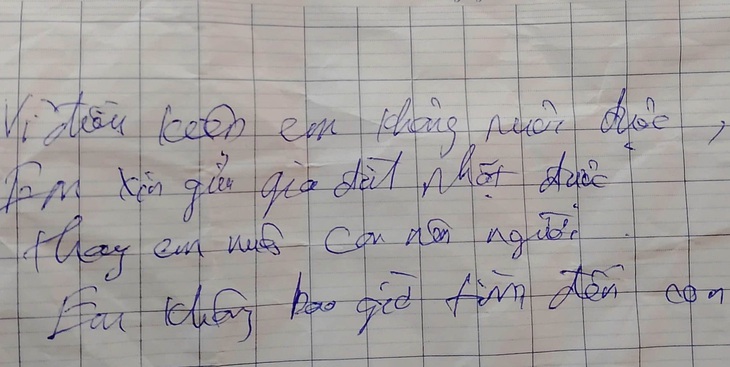 Vì điều keện em không nuôi được,
Em xin gửu gia đăt nhặt được
thay em nuô con nên người.
Em không bao giờ tìm đến con